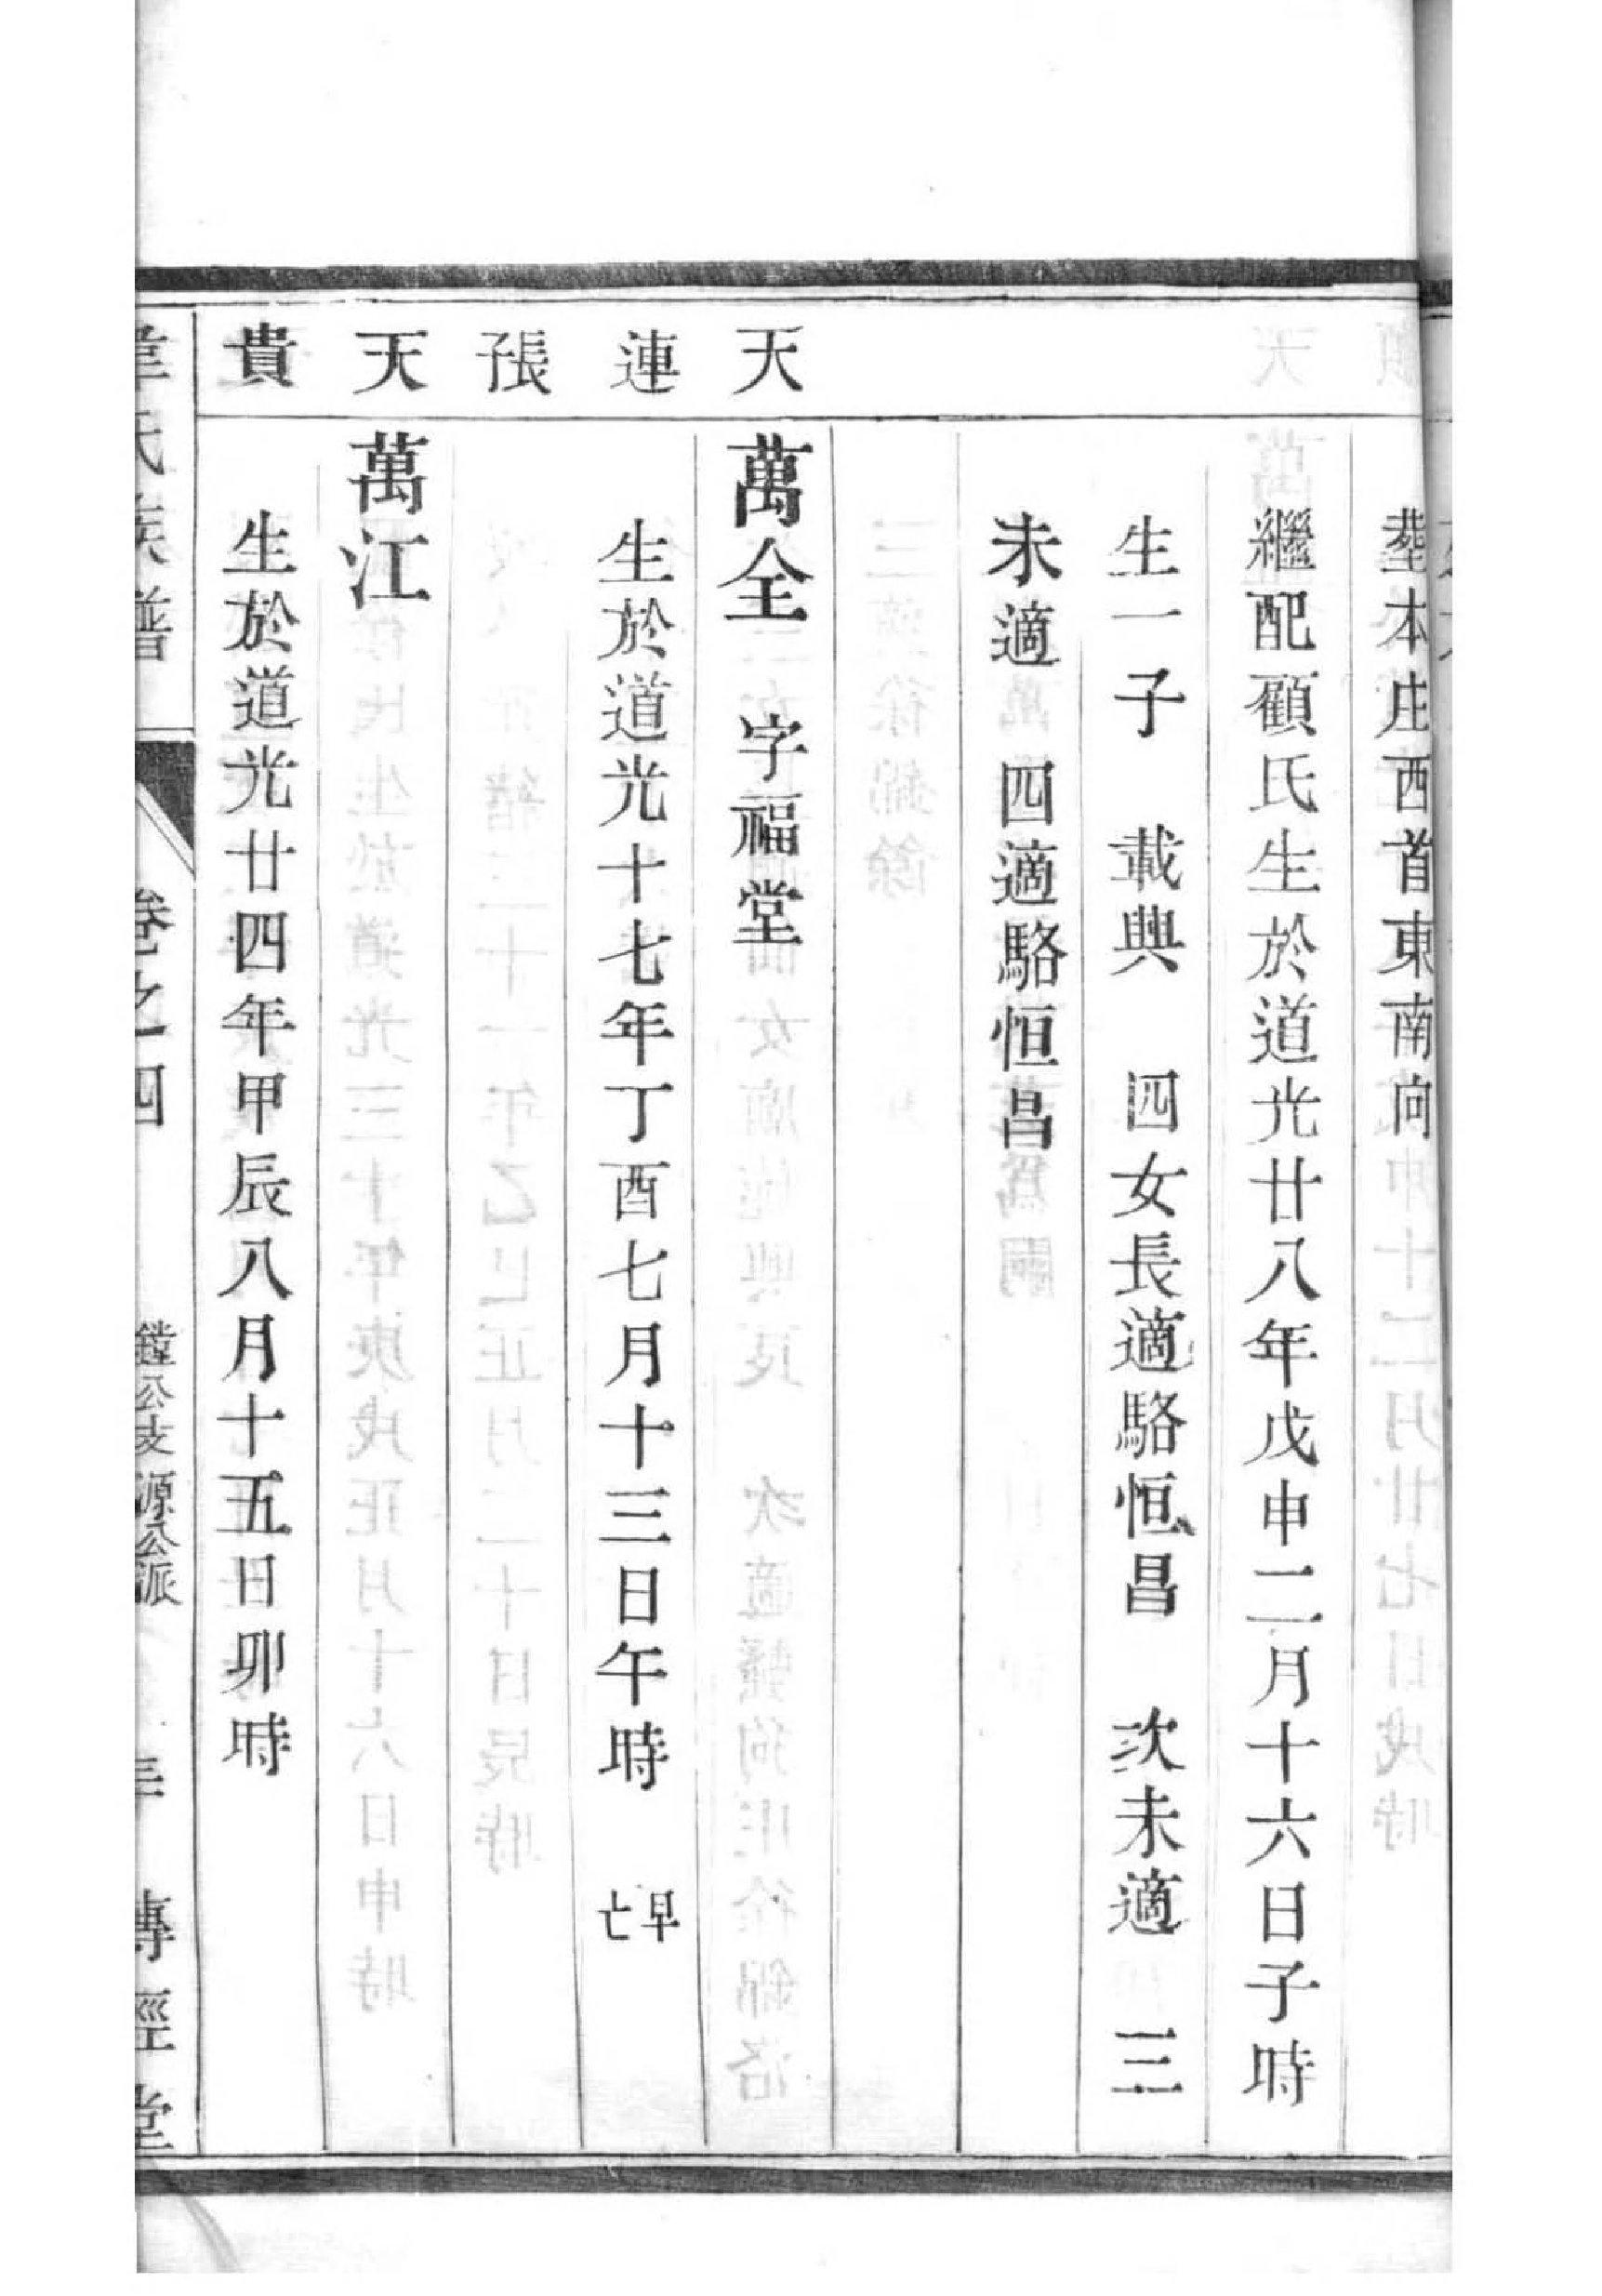 塟本庄西首東南向
繼配顧氏生於道光廿八年戊申二月十六日子時
生一子 載興 四女長適駱恒昌 次未適 三
未適 四適駱恒昌
天 萬全 字福堂
連 生於道光十七年丁酉七月十三日午時 早亡
張
天 萬江
貴 生於道光廿四年甲辰八月十五日卯時
氏族譜 卷之四 鏜公支 源公派 傳經堂